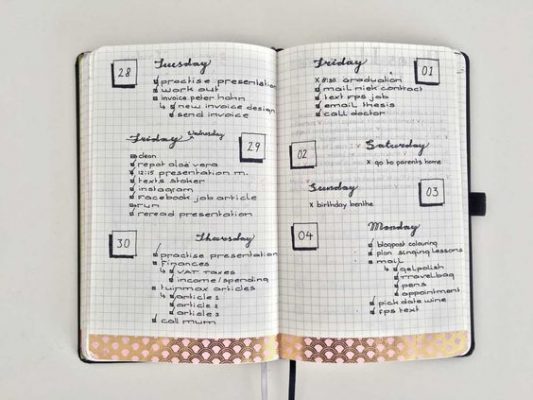 28
Tuesday
practise presentation
work out
invoice peter hahn
↳ new invoice design
send invoice
Friday Wednesday
29
clean
repot aloë vera
12:15 presentation m.
texts stoker
instagram
facebook job article
run
reread presentation
30
Thursday
practise presentation
finances
↳ VAT taxes
income/spending
tuinmax articles
↳ article 1
article 2
article 3
call mum
Friday
01
x graduation
mail niek contract
text fps job
email thesis
call doctor
02
Saturday
x go to parents home
Sunday
03
x birthday benthe
04
Monday
blogpost colouring
plan singing lessons
mail
↳ gelpolish
travelbag
pens
appointment
pick date wine
fps text